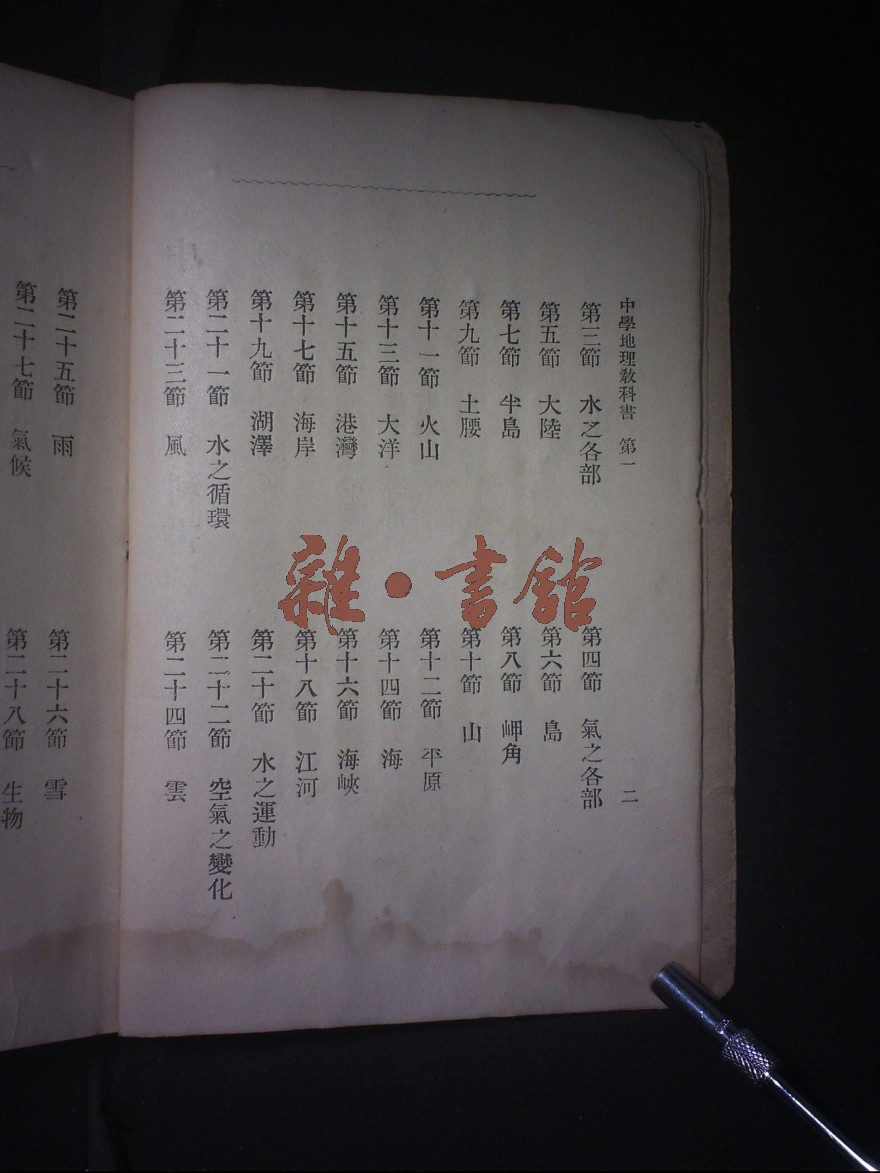 中學地理敎科書 第一 二
第三節 水之各部 第四節 氣之各部
第五節 大陸 第六節 島
第七節 半島 第八節 岬角
第九節 土腰 第十節 山
第十一節 火山 第十二節 平原
第十三節 大洋 第十四節 海
第十五節 港灣 第十六節 海峽
第十七節 海岸 第十八節 江河
第十九節 湖澤 第二十節 水之運動
第二十一節 水之循環 第二十二節 空氣之變化
第二十三節 風 第二十四節 雲
第二十五節 雨 第二十六節 雪
第二十七節 氣候 第二十八節 生物
雜·書館